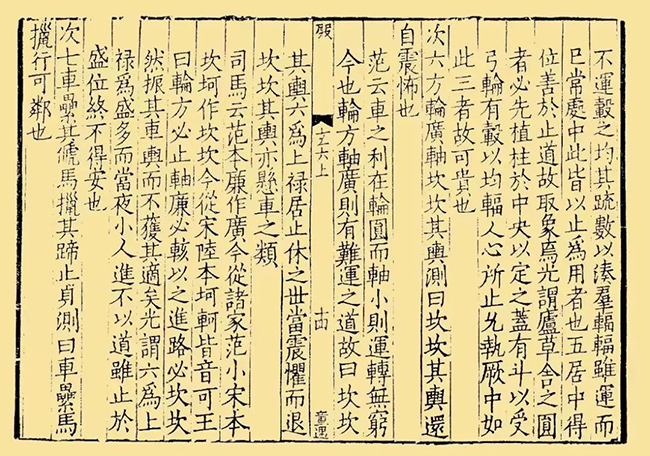 不運轂之均其疏數以湊羣輻輻雖運而
巳常處中此皆以止爲用者也五居中得
位善於止道故取象焉光謂廬草舍之圓
者必先植柱於中央以定之蓋有斗以受
弓輪有轂以均輻人心所止允執厥中如
此三者故可貴也
次六方輪廣軸坎坎其輿測曰坎坎其輿還
自震怖也
范云車之利在輪圓而軸小則運轉無窮
今也輪方軸廣則有難運之道故曰坎坎
玄六上
十四
童遇
其輿六爲上禄居止休之世當震懼而退
坎坎其輿亦懸車之類
司馬云范本廉作廣今從諸家范小宋本
坎坷作坎坎今從宋陸本坷軻皆音可王
曰輪方必止軸廉必輆以之進路必坎坎
然振其車輿而不獲其適矣光謂六爲上
禄爲盛多而當夜小人進不以道雖止於
盛位終不得安也
次七車纍其俿馬擸其蹄止貞測曰車纍馬
擸行可鄰也